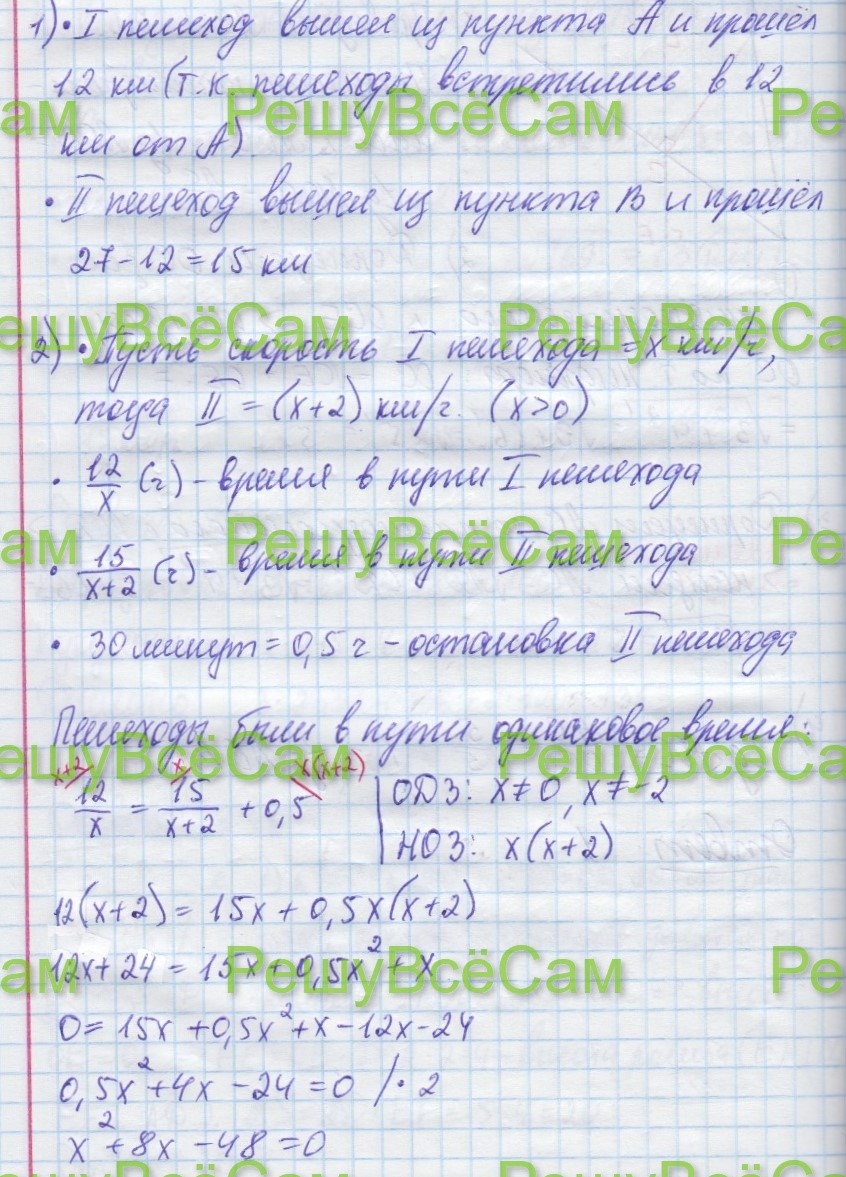 1) • I пешеход вышел из пункта A и прошёл
12 км (т.к. пешеходы встретились в 12
км от A).
• II пешеход вышел из пункта B и прошёл
27-12=15 км
2) • Пусть скорость I пешехода = x км/ч,
тогда II = (x+2) км/ч. (x>0)
• 12/x (ч) - время в пути I пешехода
• 15/(x+2) (ч) - время в пути II пешехода
• 30 минут = 0,5 ч - остановка II пешехода
Пешеходы были в пути одинаковое время:
x+2 x x(x+2)
12/x = 15/(x+2) + 0,5 | ОДЗ: x≠0, x≠-2
НОЗ: x(x+2)
12(x+2) = 15x + 0,5x(x+2)
12x+24 = 15x+0,5x²+x
0= 15x+0,5x²+x-12x-24
0,5x²+4x-24=0 /·2
x²+8x-48=0
РешуВсёСам